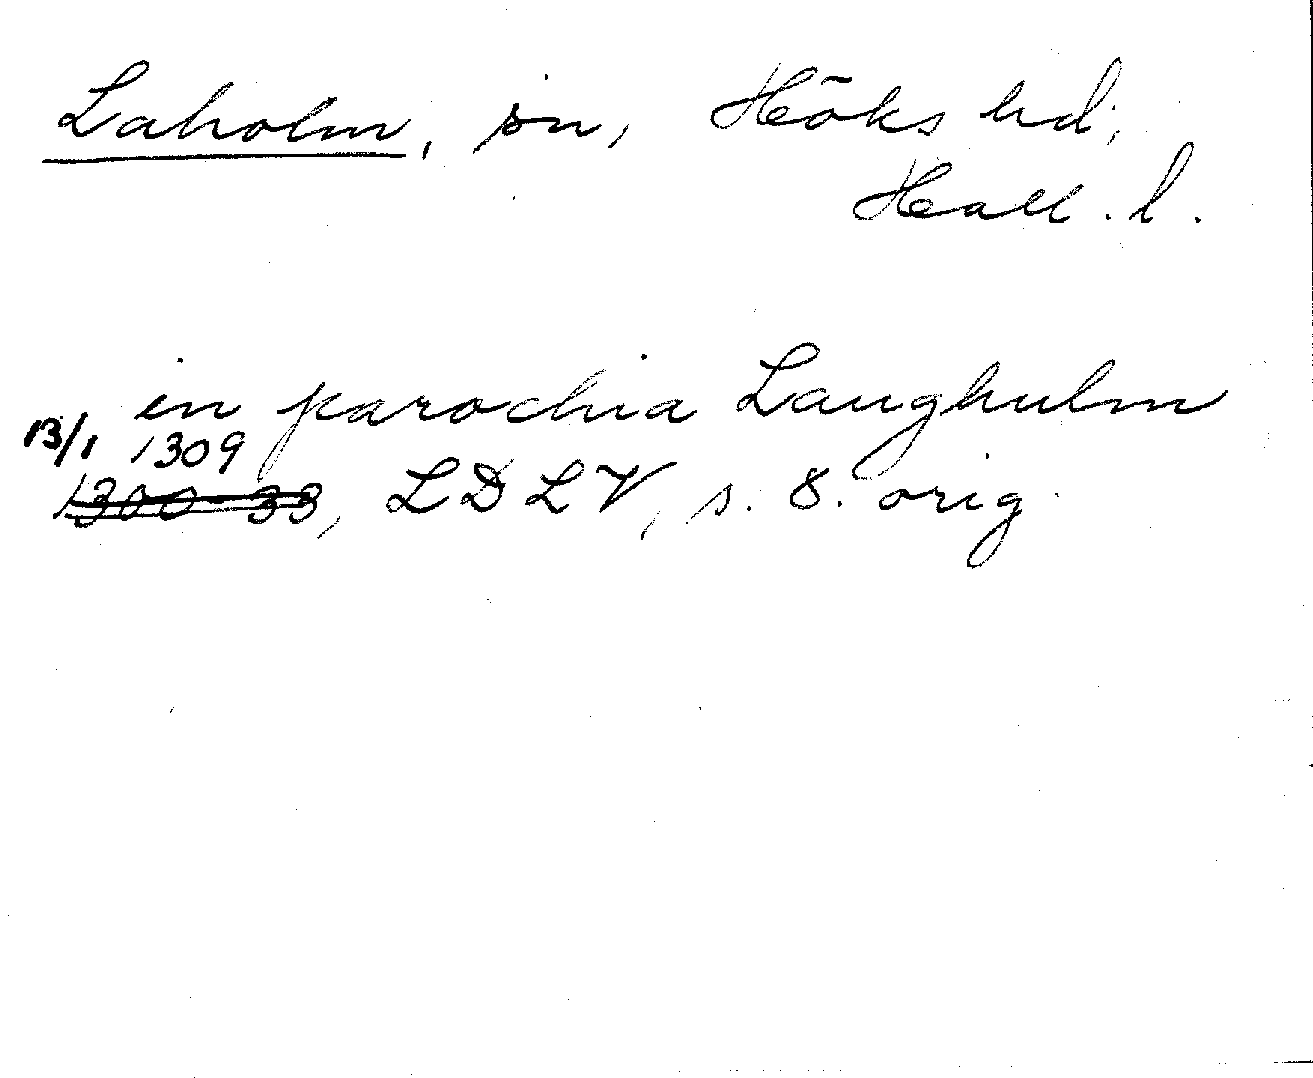 Laholm, sn, Höks hd,
Hall. l.
in parochia Laughulm
13/1 1309
1300-33, LDLV, s. 8. orig.